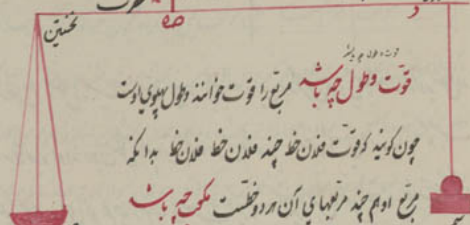 نخستین
قوت و طول چه باشد
قوّت و طول چه باشد مربع را قوت خوانند و طول پهلوی اوست
چون گویند که قوت فلان خط چند فلان خط فلان خط بدانکه
مربع او هم چند مربعهای آن هر دو خطست مکی چه باشد